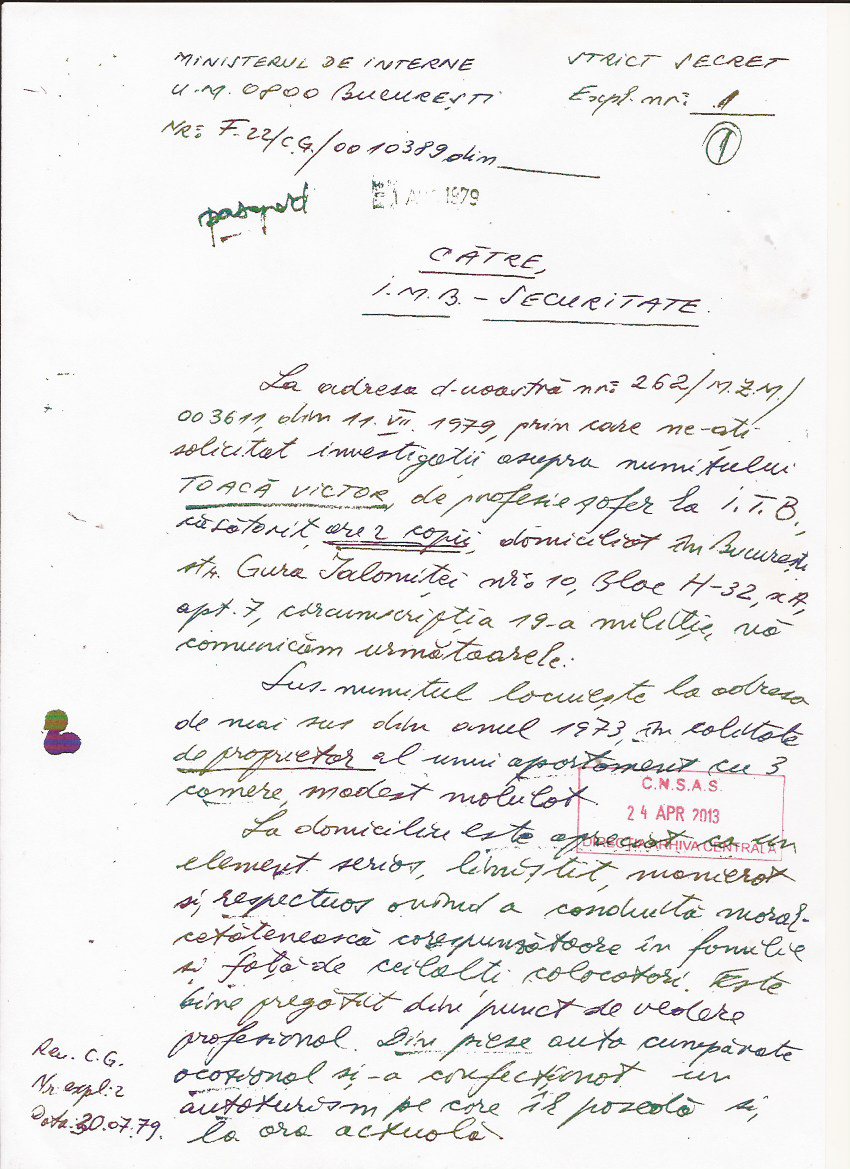 MINISTERUL DE INTERNE
STRICT SECRET
U.M. 0800 BUCUREȘTI
Expl. nr: 1
Nr: F-22/C.G./0010389 din
1
1979
CĂTRE,
I.M.B. - SECURITATE.
La adresa d-voastră nr: 262/M.Z.M./
003611, din 11.VII.1979, prin care ne-ați
solicitat investigații asupra numitului
TOACĂ VICTOR, de profesie șofer la I.T.B.,
căsătorit, are 2 copii, domiciliat în București
str. Gura Ialomiței nr: 10, Bloc H-32, sc A,
apt. 7, circumscripția 19-a miliție, vă
comunicăm următoarele:
Sus-numitul locuiește la adresa
de mai sus din anul 1973, în calitate
de proprietar al unui apartament cu 3
camere, modest mobilat.
C.N.S.A.S.
24 APR 2013
DIRECȚIA ARHIVA CENTRALĂ
La domiciliu este apreciat ca un
element serios, liniștit, manierat
și respectuos având o conduită moral-
cetățenească corespunzătoare în familie
și față de ceilalți colocatari. Este
bine pregătit din punct de vedere
profesional. Din piese auto cumpărate
ocazional și-a confecționat un
autoturism pe care îl posedă și
la ora actuală.
Red. C.G.
Nr. expl: 2
Data: 30.07.79.